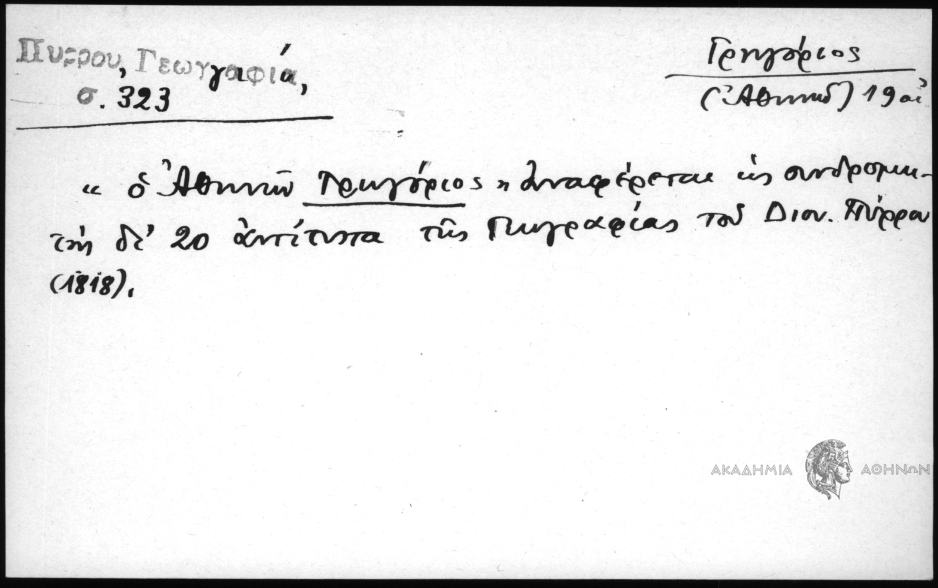 Πύρρου, Γεωγραφία,
σ. 323
Γρηγόριος
(Ἀθηνῶν) 19 αἰ
« ὁ Ἀθηνῶν Γρηγόριος » ἀναφέρεται ὡς συνδρομη-
τὴς δι' 20 ἀντίτυπα τῆς Γεωγραφίας τοῦ Διον. Πύρρου
(1818).
ΑΚΑΔΗΜΙΑ ΑΘΗΝΩΝ